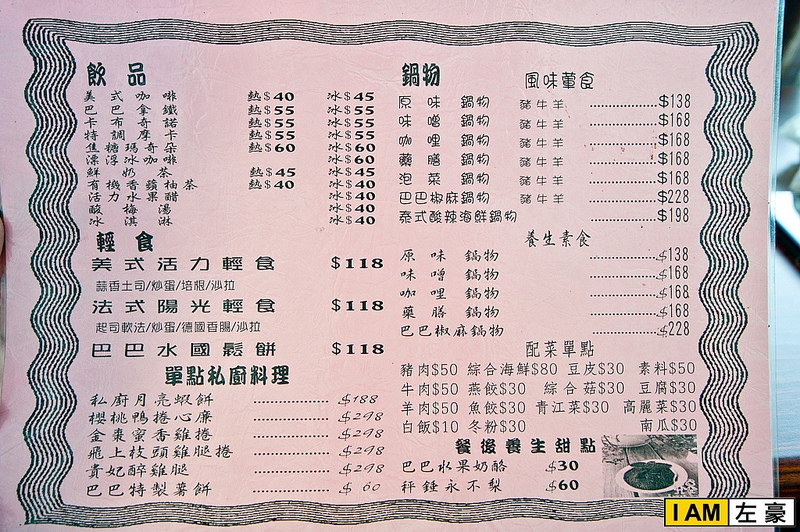 飲品
美式咖啡 熱$40 冰$45
巴巴拿鐵 熱$55 冰$55
卡布奇諾 熱$55 冰$55
特調摩卡 熱$55 冰$55
焦糖瑪奇朵 熱$60 冰$60
漂浮冰咖啡 冰$60
鮮奶茶 熱$45 冰$45
有機香蘋柚茶 熱$40 冰$40
活力水果醋 冰$40
酸梅湯 冰$40
冰淇淋 冰$40
輕食
美式活力輕食 $118
蒜香土司/炒蛋/培根/沙拉
法式陽光輕食 $118
起司軟法/炒蛋/德國香腸/沙拉
巴巴水國鬆餅 $118
單點私廚料理
私廚月亮蝦餅 $188
櫻桃鴨捲心廉 $298
金棗蜜香雞捲 $298
飛上枝頭雞腿捲 $298
貴妃醉雞腿 $298
巴巴特製薯餅 $60
鍋物 風味葷食
原味鍋物 豬牛羊 $138
味噌鍋物 豬牛羊 $168
咖哩鍋物 豬牛羊 $168
藥膳鍋物 豬牛羊 $168
泡菜鍋物 豬牛羊 $168
巴巴椒麻鍋物 豬牛羊 $228
泰式酸辣海鮮鍋物 $198
養生素食
原味鍋物 $138
味噌鍋物 $168
咖哩鍋物 $168
藥膳鍋物 $168
巴巴椒麻鍋物 $228
配菜單點
豬肉$50 綜合海鮮$80 豆皮$30 素料$50
牛肉$50 燕餃$30 綜合菇$30 豆腐$30
羊肉$50 魚餃$30 青江菜$30 高麗菜$30
白飯$10 冬粉$30 南瓜$30
餐後養生甜點
巴巴水果奶酪 $30
秤錘永不梨 $60
I AM 左豪